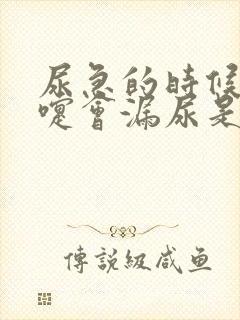 尿急的時候
嚏會漏尿是
傳說級咸鱼